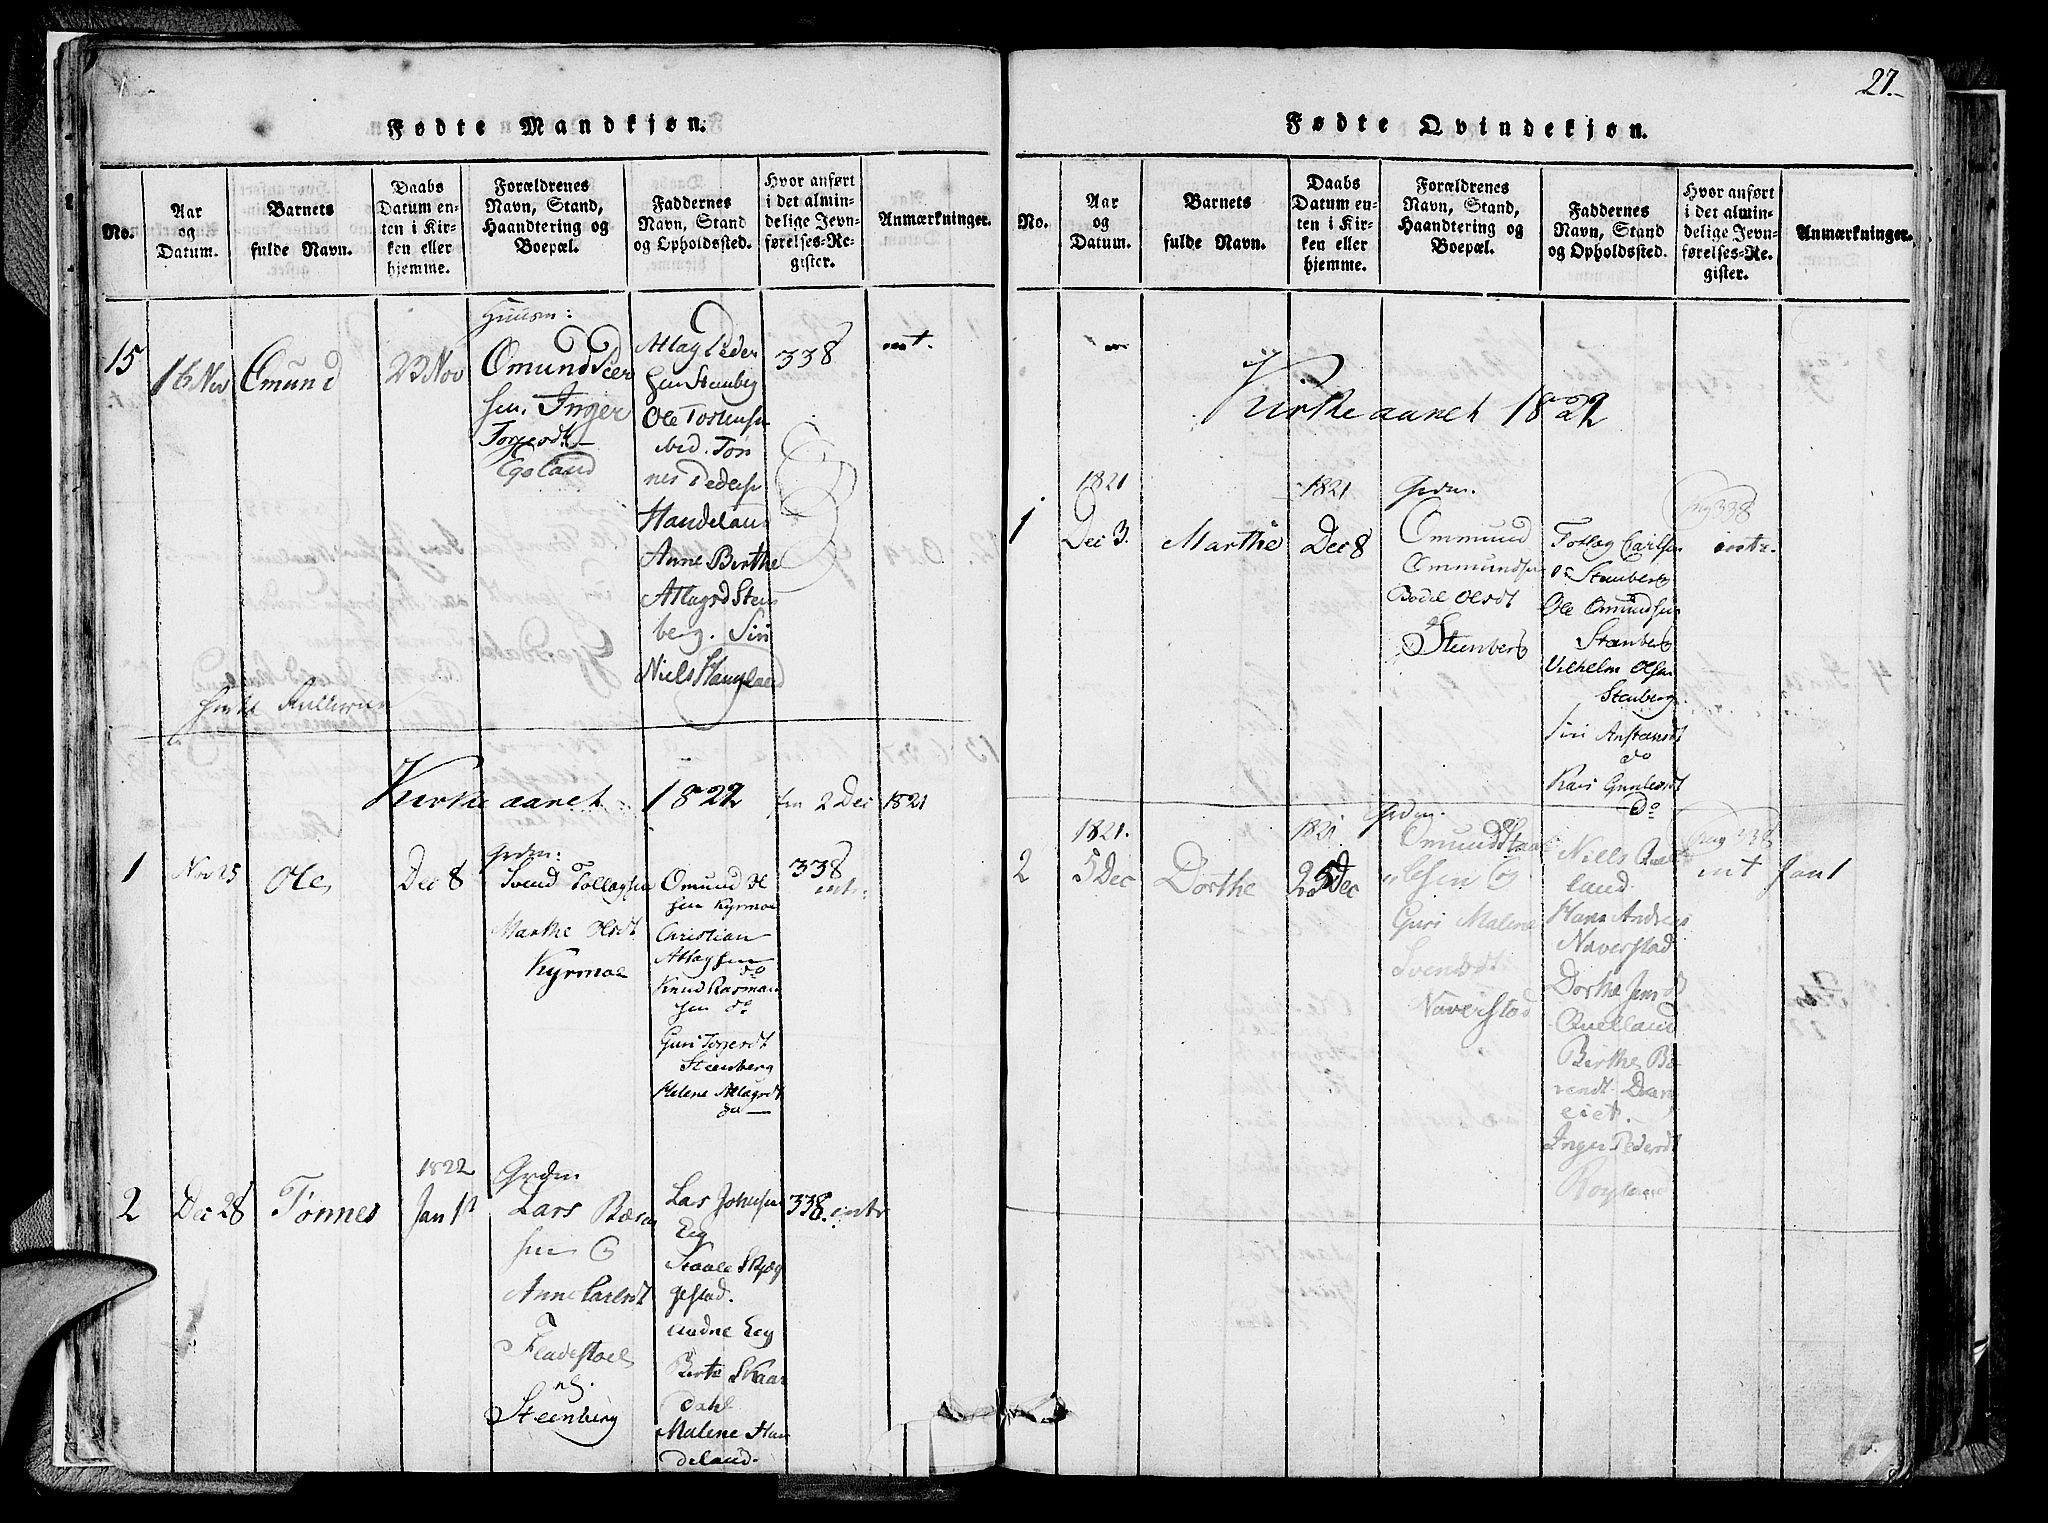 Fødte Mandkjøn.
No.
Aar
og
Datum.
Barnets
fulde Navn.
Daabs
Datum en-
ten i Kir-
ken eller
hjemme.
Forældrenes
Navn, Stand,
Haandtering og
Boepæl.
Faddernes
Navn, Stand
og Opholdssted.
Hvor anført
i det almin-
delige Jevn-
førelses-Re-
gister.
Anmærkninger.
15
16 Nov
Omund
23 Nov
Huusm:
Omund Peer
sen. Inger
Torgersdt
Egeland
Atlag Peder
sen Steenberg
Ole Tostensen
ibid. Tøn
nes Peders
Handeland
Anne Birthe
Atlagsd Steen
berg. Siri
Niels Haugland
338
int.
Kirkeaaret 1822 fra 2 Dec 1821
1
Nov 25
Ole
Dec 8
Grdm:
Svend Tollagsen
Marthe Olsdt
Kyrmoe
Omund Ol
sen Kyrmoe
Christian
Atlagsen
do
Knud Rasmus
sen do
Guri Torgersdt
Steenberg
Helene Atlagsdt
do
338
int:
2
Dec 28
Tønnes
1822
Jan 1st
Grdm
Lars
sen og
Anne Carlsdt
Fladestoel
Steenberg
Lars Johnsen
Eeg
Staale Skjæg
gestad.
Aadne Eeg
Berte Skaar
dahl
Malene Han
deland.
338. intr
27.
Fødte Qvindekjøn.
No.
Aar
og
Datum.
Barnets
fulde Navn.
Daabs
Datum en-
ten i Kir-
ken eller
hjemme.
Forældrenes
Navn, Stand,
Haandtering og
Boepæl.
Faddernes
Navn, Stand
og Opholdssted.
Hvor anført
i det almin-
delige Jevn-
førelses-Re-
gister.
Anmærkninger.
Kirkeaaret 1822
1
1821
Dec 3.
Marthe
1821
Dec 8
Grdm.
Ommund
Ommundsen
Bodil Olsdt
Steenberg
Tollag Carlsen
Steenberg
Ole Omundsen
Steenberg
Vilhelm Olsen
Steenberg
Siri Anstensdt
do
Kari Gunlevsdt
Do
pag 338
intr.
2
1821.
5 Dec
Dorthe
1821
25 Dec
Grdm.
Omund Staa
lesen og
Guri Malene
Svendsdt
Naverstad
Niels Qvel
land.
Hans Andreas
Naverstad
Dorthe Jensdt
Qvelland
Birthe Be
rendt
eiet.
Inger Pedersdt
pag 338
int Jan 1